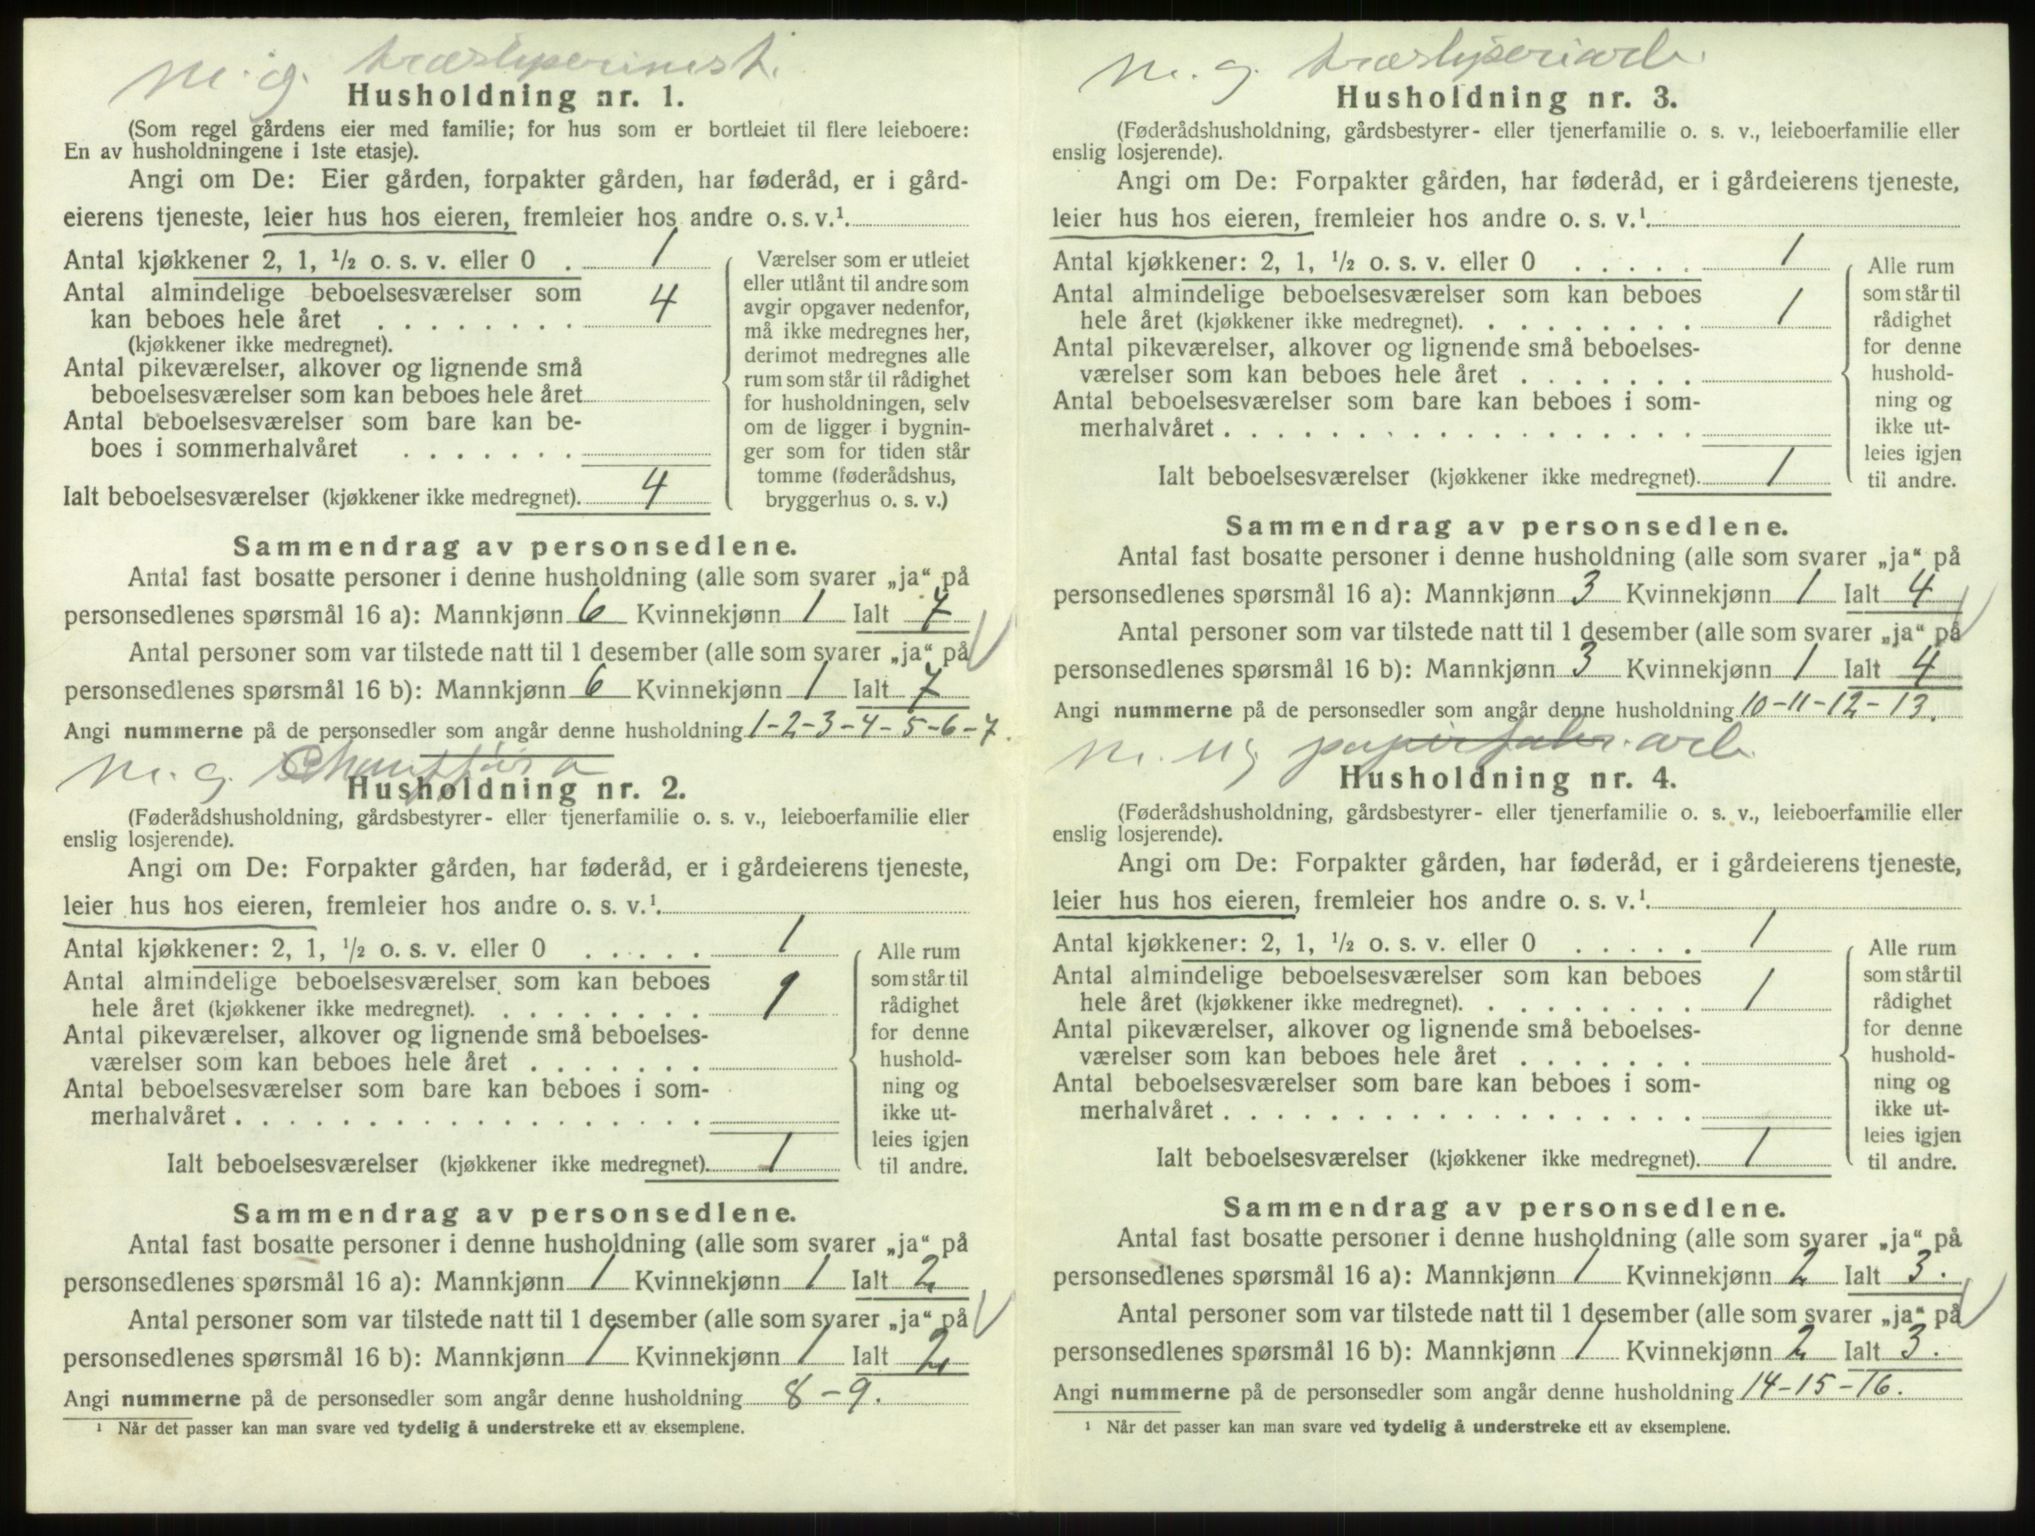 m. g. træsliperimest.
Husholdning nr. 1.
(Som regel gårdens eier med familie; for hus som er bortleiet til flere leieboere:
En av husholdningene i 1ste etasje).
Angi om De: Eier gården, forpakter gården, har føderåd, er i gård-
eierens tjeneste, leier hus hos eieren, fremleier hos andre o. s. v.¹
Antal kjøkkener 2, 1, ½ o. s. v. eller 0 . 1
Antal almindelige beboelsesværelser som
kan beboes hele året . . . . . . . . 4
(kjøkkener ikke medregnet).
Antal pikeværelser, alkover og lignende små
beboelsesværelser som kan beboes hele året
Antal beboelsesværelser som bare kan be-
boes i sommerhalvåret . . . . . . .
Ialt beboelsesværelser (kjøkkener ikke medregnet). 4
Værelser som er utleiet
eller utlånt til andre som
avgir opgaver nedenfor,
må ikke medregnes her,
derimot medregnes alle
rum som står til rådighet
for husholdningen, selv
om de ligger i bygnin-
ger som for tiden står
tomme (føderådshus,
bryggerhus o. s. v.)
Sammendrag av personsedlene.
Antal fast bosatte personer i denne husholdning (alle som svarer „ja“ på
personsedlenes spørsmål 16 a): Mannkjønn 6 Kvinnekjønn 1 Ialt 7
Antal personer som var tilstede natt til 1 desember (alle som svarer „ja“ på
personsedlenes spørsmål 16 b): Mannkjønn 6 Kvinnekjønn 1 Ialt 7
Angi nummerne på de personsedler som angår denne husholdning 1-2-3-4-5-6-7.
m. g.
Husholdning nr. 2.
(Føderådshusholdning, gårdsbestyrer- eller tjenerfamilie o. s. v., leieboerfamilie eller
enslig losjerende).
Angi om De: Forpakter gården, har føderåd, er i gårdeierens tjeneste,
leier hus hos eieren, fremleier hos andre o. s. v.¹
Antal kjøkkener: 2, 1, ½ o. s. v. eller 0 . . . . . 1
Antal almindelige beboelsesværelser som kan beboes
hele året (kjøkkener ikke medregnet). . . . . . . . . 1
Antal pikeværelser, alkover og lignende små beboelses-
værelser som kan beboes hele året . . . . . . .
Antal beboelsesværelser som bare kan beboes i som-
merhalvåret . . . . . . . . . . . . . . . . . .
Ialt beboelsesværelser (kjøkkener ikke medregnet). 1
Alle rum
som står til
rådighet
for denne
hushold-
ning og
ikke ut-
leies igjen
til andre.
Sammendrag av personsedlene.
Antal fast bosatte personer i denne husholdning (alle som svarer „ja“ på
personsedlenes spørsmål 16 a): Mannkjønn 1 Kvinnekjønn 1 Ialt 2
Antal personer som var tilstede natt til 1 desember (alle som svarer „ja“ på
personsedlenes spørsmål 16 b): Mannkjønn 1 Kvinnekjønn 1 Ialt 2
Angi nummerne på de personsedler som angår denne husholdning 8-9.
¹ Når det passer kan man svare ved tydelig å understreke ett av eksemplene.
m. g. træsliperiarb.
Husholdning nr. 3.
(Føderådshusholdning, gårdsbestyrer- eller tjenerfamilie o. s. v., leieboerfamilie eller
enslig losjerende).
Angi om De: Forpakter gården, har føderåd, er i gårdeierens tjeneste,
leier hus hos eieren, fremleier hos andre o. s. v.¹
Antal kjøkkener: 2, 1, ½ o. s. v. eller 0 . . . . . 1
Antal almindelige beboelsesværelser som kan beboes
hele året (kjøkkener ikke medregnet). . . . . . . . . 1
Antal pikeværelser, alkover og lignende små beboelses-
værelser som kan beboes hele året . . . . . . .
Antal beboelsesværelser som bare kan beboes i som-
merhalvåret . . . . . . . . . . . . . . . . . .
Ialt beboelsesværelser (kjøkkener ikke medregnet). 1
Alle rum
som står til
rådighet
for denne
hushold-
ning og
ikke ut-
leies igjen
til andre.
Sammendrag av personsedlene.
Antal fast bosatte personer i denne husholdning (alle som svarer „ja“ på
personsedlenes spørsmål 16 a): Mannkjønn 3 Kvinnekjønn 1 Ialt 4
Antal personer som var tilstede natt til 1 desember (alle som svarer „ja“ på
personsedlenes spørsmål 16 b): Mannkjønn 3 Kvinnekjønn 1 Ialt 4
Angi nummerne på de personsedler som angår denne husholdning 10-11-12-13.
m. ug papirfabr. arb.
Husholdning nr. 4.
(Føderådshusholdning, gårdsbestyrer- eller tjenerfamilie o. s. v., leieboerfamilie eller
enslig losjerende).
Angi om De: Forpakter gården, har føderåd, er i gårdeierens tjeneste,
leier hus hos eieren, fremleier hos andre o. s. v.¹
Antal kjøkkener: 2, 1, ½ o. s. v. eller 0 . . . . . 1
Antal almindelige beboelsesværelser som kan beboes
hele året (kjøkkener ikke medregnet). . . . . . . . . 1
Antal pikeværelser, alkover og lignende små beboelses-
værelser som kan beboes hele året . . . . . . .
Antal beboelsesværelser som bare kan beboes i som-
merhalvåret . . . . . . . . . . . . . . . . . .
Ialt beboelsesværelser (kjøkkener ikke medregnet). 1
Alle rum
som står til
rådighet
for denne
hushold-
ning og
ikke ut-
leies igjen
til andre.
Sammendrag av personsedlene.
Antal fast bosatte personer i denne husholdning (alle som svarer „ja“ på
personsedlenes spørsmål 16 a): Mannkjønn 1 Kvinnekjønn 2 Ialt 3.
Antal personer som var tilstede natt til 1 desember (alle som svarer „ja“ på
personsedlenes spørsmål 16 b): Mannkjønn 1 Kvinnekjønn 2 Ialt 3.
Angi nummerne på de personsedler som angår denne husholdning 14-15-16.
¹ Når det passer kan man svare ved tydelig å understreke ett av eksemplene.